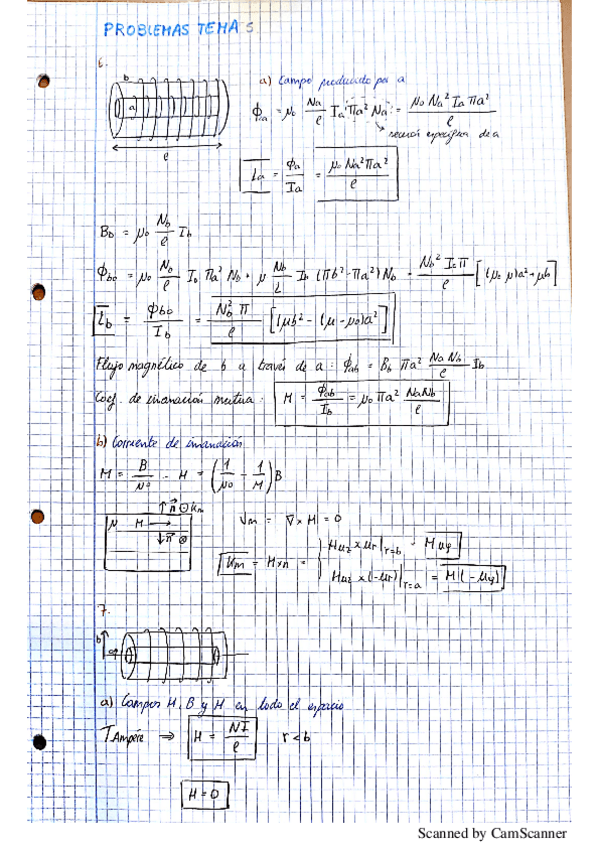 PROBLEMAS TEMA 5
6.
b
a
e
a) Campo producido por a
ϕa = μ0 Na/e Ia πa² Na = μ0 Na² Ia πa² / e
sección específica de a
La = ϕa/Ia = μ0 Na² πa² / e
Bb = μ0 Nb/e Ib
ϕbb = μ0 Nb/e Ib πa² Nb + μ Nb/e Ib (πb² - πa²) Nb = Nb² Ib π / e [(μ0-μ)a² + μb]
Lb = ϕbb/Ib = Nb² π / e [(μb² - (μ - μ0)a²]
Flujo magnético de b a través de a: ϕab = Bb πa² Na Nb / e Ib
Coef. de imanación mutua: M = ϕab/Ib = μ0 πa² NaNb / e
b) Corriente de imanación
M = B/μ0 - H = (1/μ0 - 1/M) B
↑ n ⊙ Km
M →
↓ n ⊗
Jm = ∇ × M = 0
Km = M×n = { M uz × ur |r=b = M uφ
M uz × (-ur) |r=a = M (-uφ)
7.
b
a) Campos H, B y M en todo el espacio
TAmpère ⇒ H = NI/e r < b
H = 0
Scanned by CamScanner